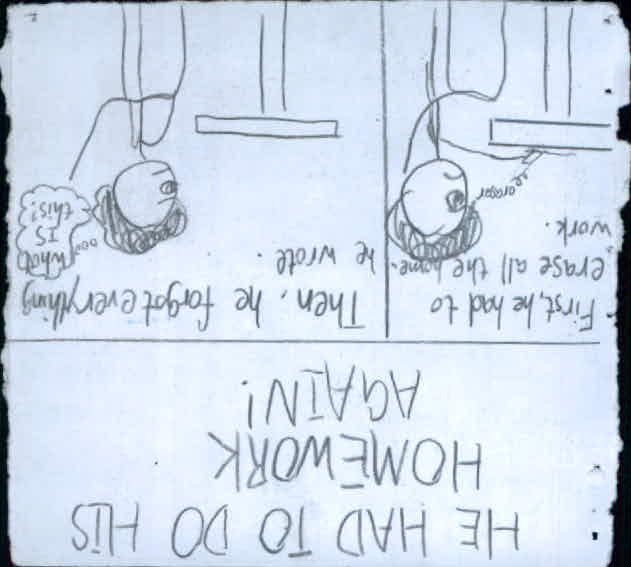 HE HAD TO DO HIS
HOMEWORK
AGAIN!
First, he had to
erase all the home-
work.
eraser
Then, he forgot everything
he wrote.
What
IS
this?
2